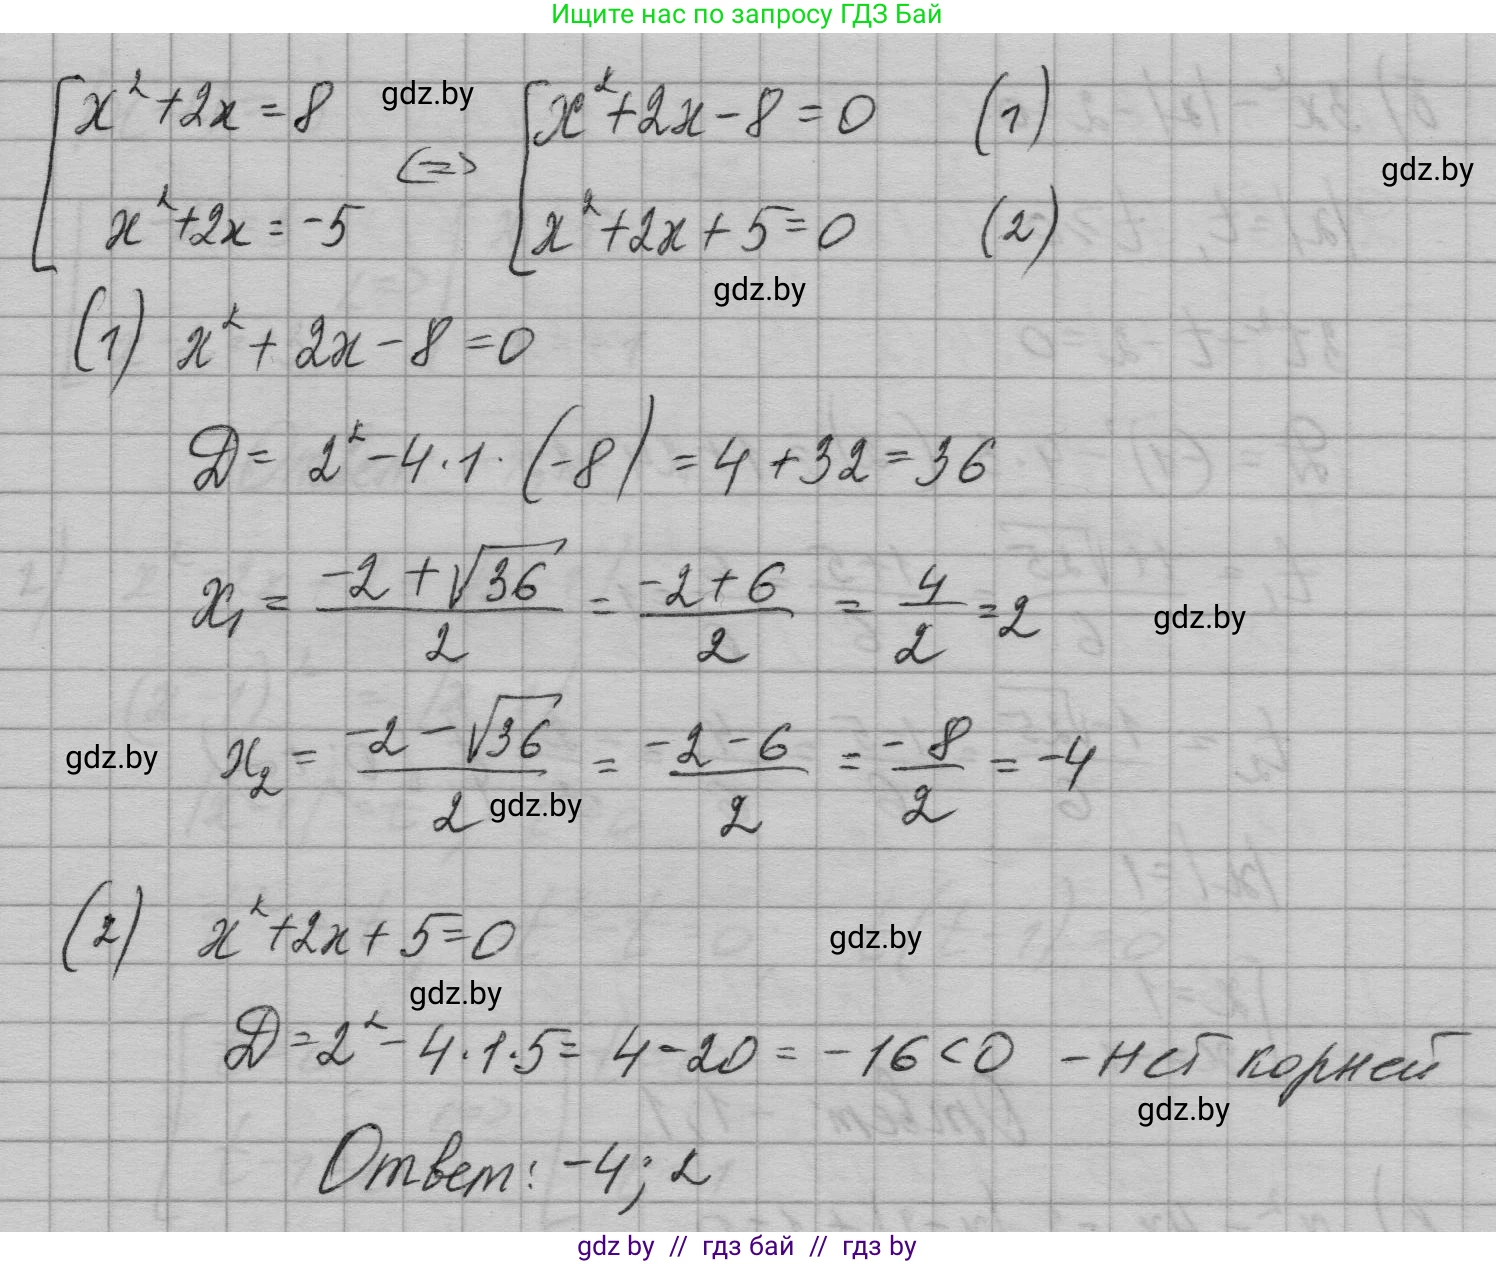 Ищите нас по запросу ГДЗ Бай
x² + 2x = 8 gdz.by x² + 2x - 8 = 0 (1)
<=> gdz.by
x² + 2x = -5 x² + 2x + 5 = 0 (2)
gdz.by
(1) x² + 2x - 8 = 0
D = 2² - 4 · 1 · (-8) = 4 + 32 = 36
x₁ = (-2 + √36)/2 = (-2 + 6)/2 = 4/2 = 2 gdz.by
gdz.by x₂ = (-2 - √36)/2 = (-2 - 6)/2 = -8/2 = -4
gdz.by
(2) x² + 2x + 5 = 0 gdz.by
gdz.by
D = 2² - 4 · 1 · 5 = 4 - 20 = -16 < 0 - нет корней
gdz.by
Ответ: -4; 2
gdz by // гдз бай // гдз by